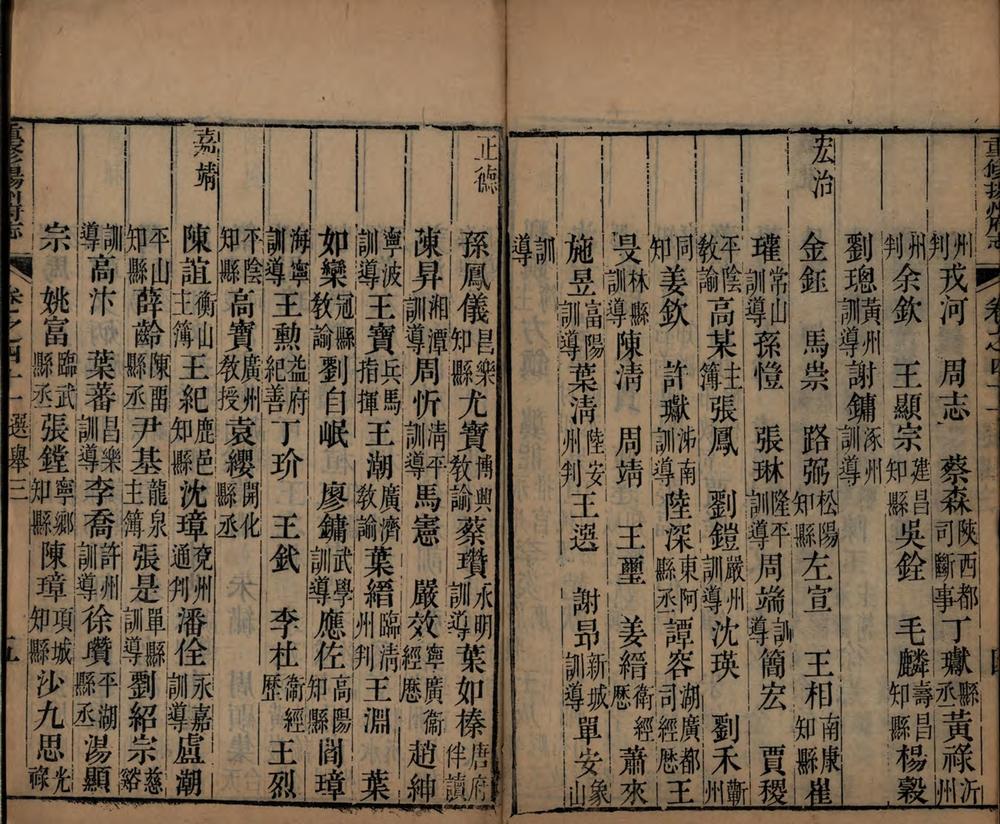 州判戎河 周志 蔡森陝西都司斷事丁瓛縣丞黃祿沂州
州判余欽 王顯宗建昌知縣吳銓 毛麟壽昌知縣楊穀
劉璁黃州訓導謝鏞涿州訓導
宏治
金鉦 馬祟 路弼松陽知縣左宣 王相南康知縣崔
瓘常山訓導孫愷 張琳隆平訓導周端訓導簡宏 賈稷
平陰教諭高某主簿張鳳 劉鎧嚴州訓導沈瑛 劉禾蘄州
同知姜欽 許瓛沭南訓導陸深東阿縣丞譚容湖廣都司經歷王
旻林縣訓導陳淸 周靖 王璽 姜縉衛經歷蕭來
施昱富陽訓導葉淸陸安州判王選 謝昻新城訓導單安象山
訓導
正德
孫鳳儀昌樂知縣尤寶博興教諭蔡瓚永明訓導葉如榛唐府伴讀
陳昇湘潭訓導周忻淸平訓導馬憲 嚴效寧廣衞經歷趙紳
寧波訓導王寶兵馬指揮王潮廣濟教諭葉縉臨淸州判王淵 葉
如欒冠縣教諭劉自岷 廖鏞武學訓導應佐高陽知縣閻璋
海寧訓導王勲益府紀善丁玠 王釴 李杜衞經歷王烈
平陰知縣高寶廣州教授袁纓開化縣丞
嘉靖
陳誼衡山主簿王紀鹿邑知縣沈璋兗州通判潘佺永嘉訓導盧潮
平山知縣薛齡陳留縣丞尹基龍泉主簿張是單縣訓導劉紹宗慈谿
訓導高汴 葉蕃昌樂訓導李喬許州訓導徐瓚平湖縣丞湯顯
宗 姚富臨武縣丞張鏜寧鄉知縣陳璋項城知縣沙九思光祿
重修揚州府志
卷之四十一 選舉三
五